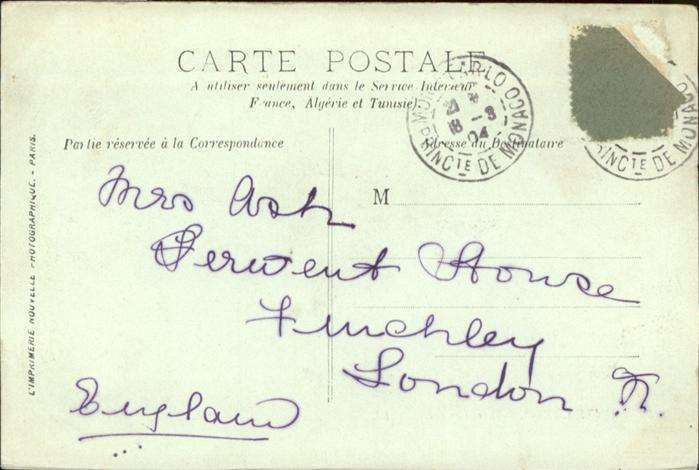 CARTE POSTALE
A utiliser seulement dans le Service Interieur
France, Algérie et Tunisie)
Partie réservée à la Correspondance
Adresse du Destinataire
MONTE-CARLO
21
18 - 3
04
PRINCTÉ DE MONACO
PRINCTÉ DE MONACO
M
Mrs Ash
Derwent House
Finchley
London N.
England
L'IMPRIMERIE NOUVELLE PHOTOGRAPHIQUE. - PARIS.